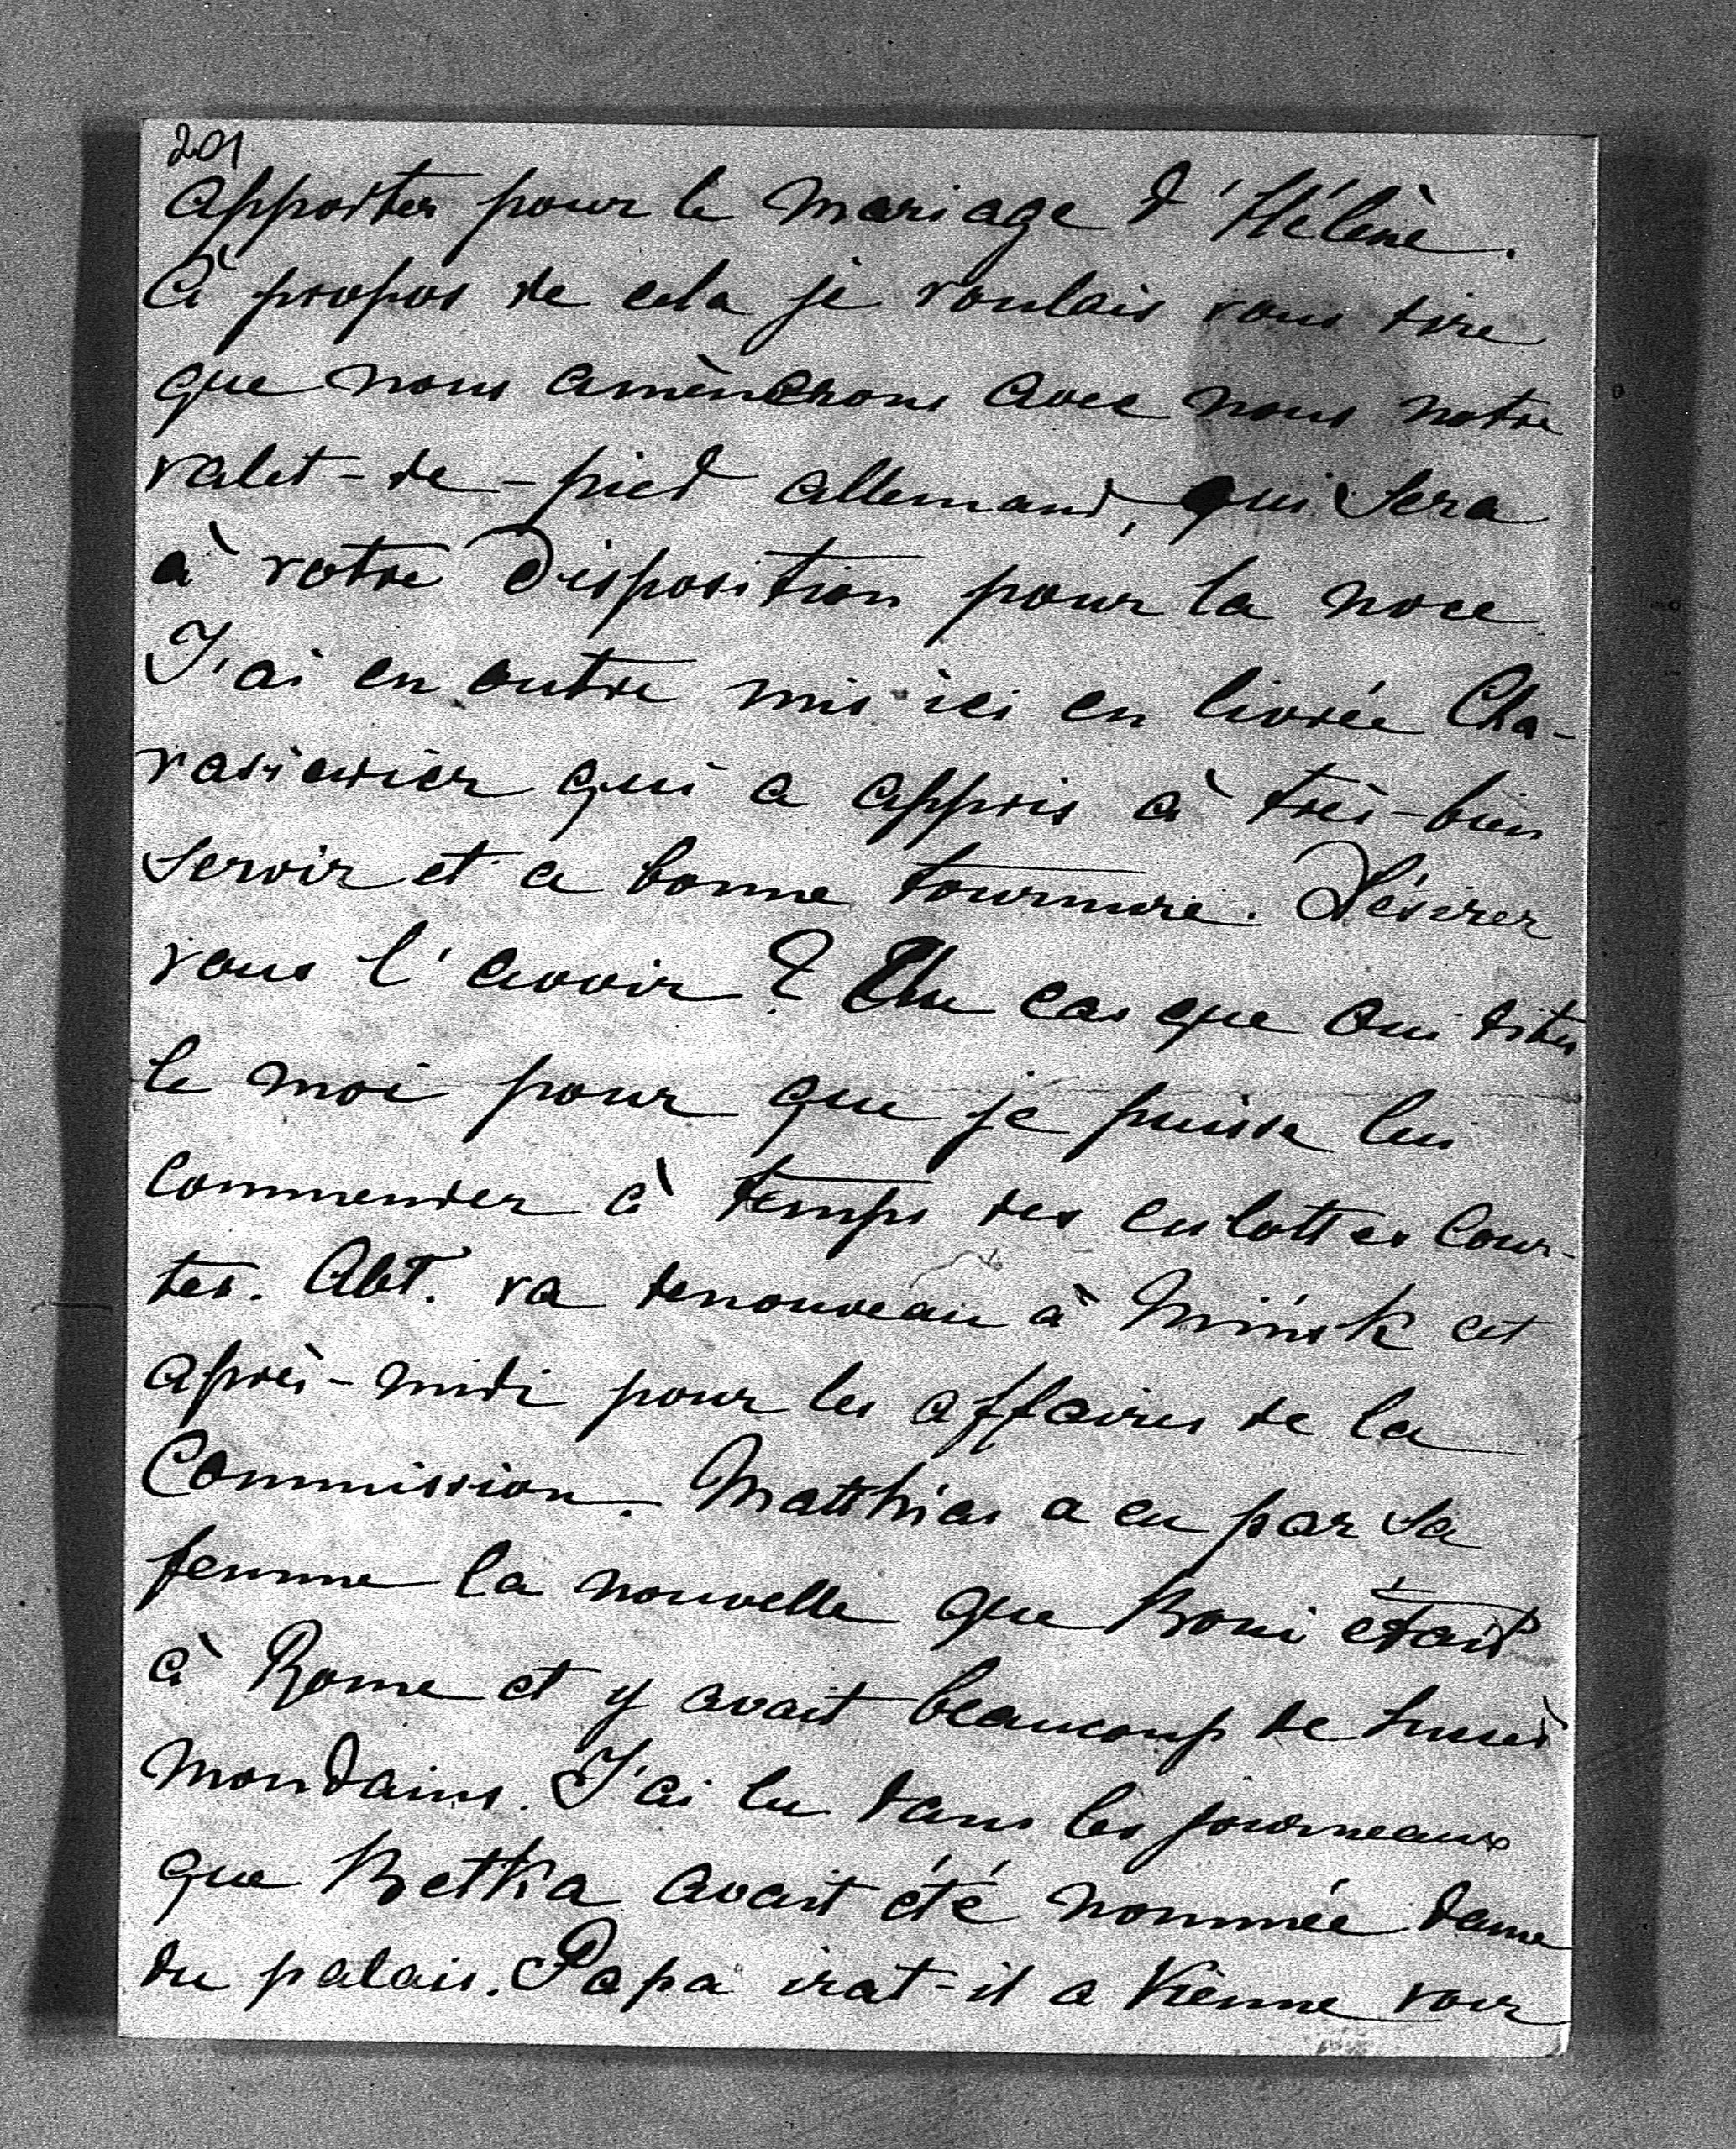 201
apporter pour le mariage d'Hélène.
à propos de cela je voulais vous dire
que nous amènerons avec nous notre
valet-de-pied allemand, qui sera
à votre disposition pour la noce.
J'ai en outre mis ici en livrée Cha-
rasiewicz qui a appris à très-bien
servir et a bonne tournure. Désirez
vous l'avoir? Au cas que oui dites
le moi pour que je puisse lui
commender à temps des culottes cour-
tes. Abt. va denouveau à Mińsk cet
après-midi pour les affaires de la
Commission. Matthias a eu par sa
femme la nouvelle que Boni était
à Rome et y avait beaucoup de succès
mondains. J'ai lu dans les journeaux
que Betka avait été nommée dame
du palais. Papa irat-il a Vienne voir